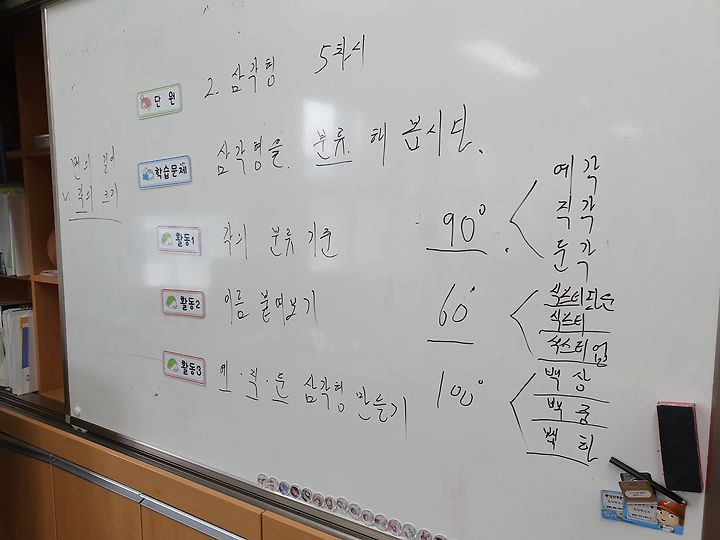 단원 2. 삼각형 5차시
변의 길이
v. 각의 크기
학습문제 삼각형을 분류 해 봅시다.
활동1 각의 분류 기준
활동2 이름 붙여보기
활동3 예·직·둔 삼각형 만들기
90°
예각
직각
둔각
60°
식스티다운
식스티
식스티업
100°
백상
백중
백하